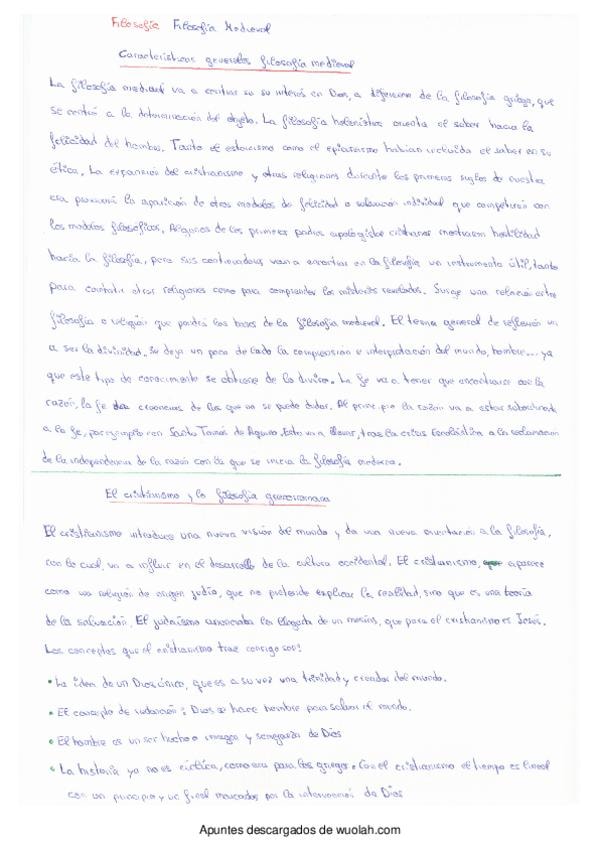 Filosofía Filosofía Medieval
Características generales filosofía medieval
La filosofía medieval va a centrar su interés en Dios, a diferencia de la filosofía griega, que
se centró a la determinación del objeto. La filosofía helenística orienta el saber hacia la
felicidad del hombre. Tanto el estoicismo como el epicureismo habían incluido el saber en su
ética. La expansión del cristianismo y otras religiones durante los primeros siglos de nuestra
era provocará la aparición de otros modelos de felicidad o salvación individual que competirán con
los modelos filosóficos. Algunos de los primeros padres apologistas cristianos mostraron hostilidad
hacia la filosofía, pero sus continuadores van a encontrar en la filosofía un instrumento útil, tanto
para combatir otras religiones como para comprender los misterios revelados. Surge una relación entre
filosofía o religión que pondrá las bases de la filosofía medieval. El tema general de reflexión va
a ser la divinidad. Se deja un poco de lado la comprensión e interpretación del mundo, hombre... ya
que este tipo de conocimiento se obtiene de lo divino. La fe va a tener que encontrarse con la
razón, la fe creencias de las que no se puede dudar. Al principio la razón va a estar subordinada
a la fe, por ejemplo con Santo Tomás de Aquino. Esto va a llevar, tras la crisis Escolástica a la
de la independencia de la razón con la que se inicia la filosofía moderna.
El cristianismo y la filosofía grecorromana
El cristianismo introduce una nueva visión del mundo y da una nueva orientación a la filosofía,
con lo cual, va a influir en el desarrollo de la cultura occidental. El cristianismo, aparece
como una religión de origen judío, que no pretende explicar la realidad, sino que es una teoría
de la salvación. El judaísmo anunciaba la llegada de un mesías, que para el cristianismo es Jesús.
Los conceptos que el cristianismo trae consigo son:
• La idea de un Dios único, que es a su vez una trinidad y creador del mundo.
• El concepto de : Dios se hace hombre para salvar el mundo.
• El hombre es un ser hecho a imagen y semejanza de Dios
• La historia ya no es cíclica, como era para los griegos. Con el cristianismo el tiempo es lineal
con un principio y un final marcados por la intervención de Dios
Apuntes descargados de wuolah.com